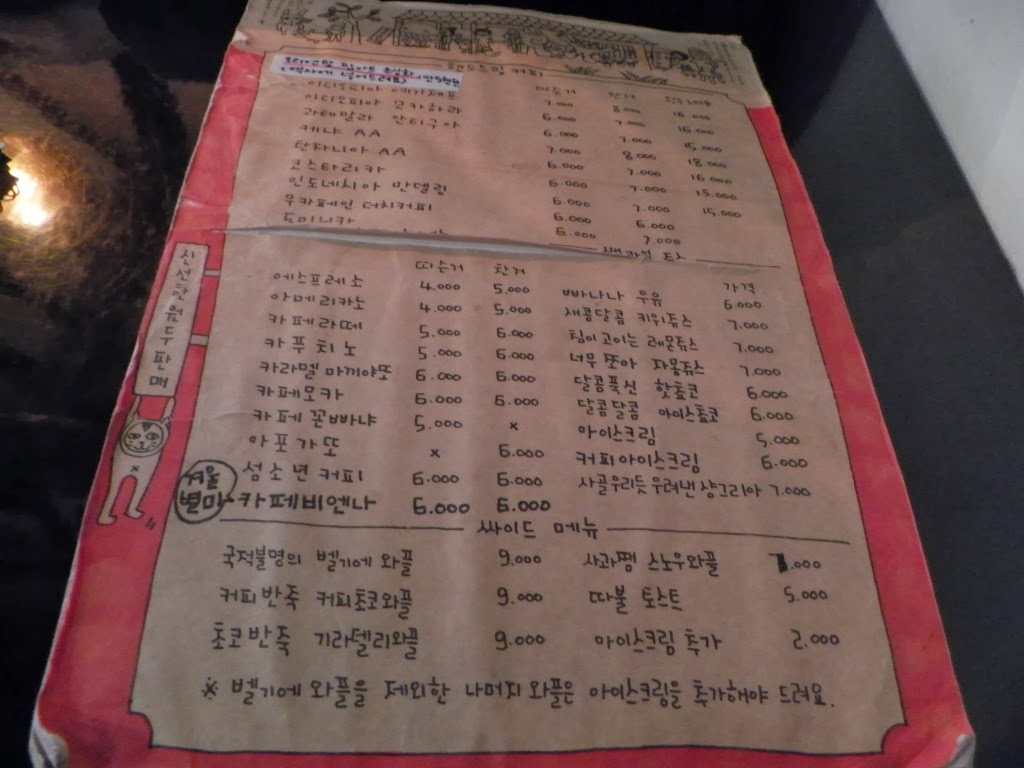 핸드드립 커피
이디오피아 예가체프 7.000 8.000
이디오피아 모카하라 6.000 7.000 16.000
과테말라 안티구아 6.000 7.000 15.000
케냐 AA 7.000 8.000 18.000
탄자니아 AA 6.000 7.000 16.000
코스타리카 6.000 7.000 15.000
인도네시아 만델링 6.000 7.000 15.000
무카페인 더치커피 6.000 6.000
도미니카 6.000 7.000
신선한 원두 판매
따슨거 찬거
에스프레소 4.000 5.000
아메리카노 4.000 5.000
카페라떼 5.000 6.000
카푸치노 5.000 6.000
카라멜 마끼아또 6.000 6.000
카페모카 6.000 6.000
카페 꼰빠냐 5.000 x
아포가또 x 6.000
섬소년 커피 6.000 6.000
겨울 별미 카페비엔나 6.000 6.000
가격
빠나나 우유 6.000
새콤달콤 키위쥬스 7.000
침이 고이는 레몬쥬스 7.000
너무 쪼아 자몽쥬스 7.000
달콤푹신 핫쵸코 6.000
달콤달콤 아이스쵸코 6.000
아이스크림 5.000
커피아이스크림 6.000
사골우리듯 우려낸 샹그리아 7.000
싸이드 메뉴
국적불명의 벨기에 와플 9.000
커피반죽 커피초코와플 9.000
초코반죽 기라델리와플 9.000
사과쨈 스노우와플 7.000
따불 토스트 5.000
아이스크림 추가 2.000
※ 벨기에 와플을 제외한 나머지 와플은 아이스크림을 추가해야 드려요.